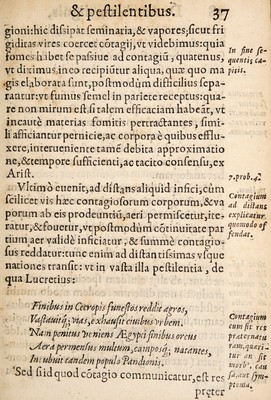 & pestilentibus. 37
gioni: hic dissipat seminaria, & vapores; sicut fri
giditas vires coercet cōtagij, vt videbimus: quia
fomes habet se passiue ad contagiū, quatenus,
vt diximus in eo recipiūtur aliqua, quæ quo ma
gis elaborata sunt, postmodùm difficilius sepa-
rantur: vt fumus semel in pariete receptus: qua-
re non mirum est si talem efficaciam habēt, vt
incautè materias fomitis pertractantes, simi-
li afficiantur pernicie, ac corpora è quibus efflu-
xere, interueniente tamē debita approximatio
ne, & tempore sufficienti, ac tacito consensu, ex
Arist.
In fine se-
quentis ca-
pitis.
7. prob. 4.
Vltimò euenit, ad distans aliquid infici, cùm
scilicet vis hæc contagiosorum corporum, & va
porum ab eis prodeuntiū, aeri permiscetur, ite-
ratur, & fouetur, vt postmodùm cōtinuitate par
tium aer validè inficiatur, & summè contagio-
sus reddatur: tunc enim ad distantissimas vsque
nationes transit: vt in vasta illa pestilentia, de
qua Lucretius:
Contagium
ad distans
explicatur
quomodo of
fendat.
Finibus in Cecropis funestos reddit agros,
Vastauitq; vias, exhausit ciuibus vrbem.
Nam penitus veniens Ægypti finibus orcus
Aera permensus multum, camposq; natantes,
Incubuit tandem populo Pandionis.
Sed siid quod cōtagio communicatur, est res
præter
Contagium
est res